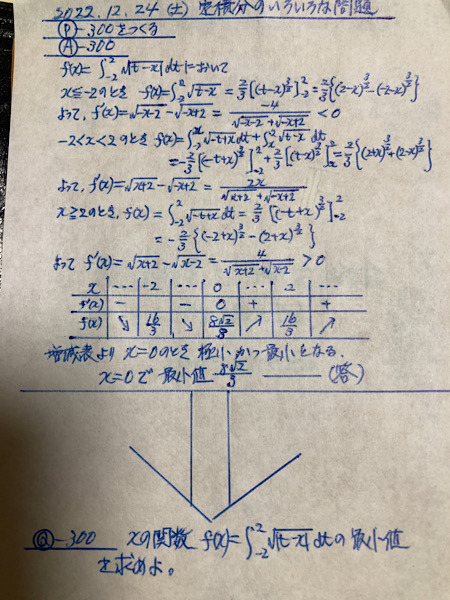 2022.12.24 (土) 定積分のいろいろな問題
Ⓟ-300をつくる
Ⓐ-300
f(x)=∫_{-2}^{2}√|t-x| dt において
x≦-2のとき f(x)=∫_{-2}^{2}√t-x = 2/3[(t-x)^{3/2}]_{-2}^{2} = 2/3{(2-x)^{3/2}-(-2-x)^{3/2}}
よって, f'(x)=√-x-2 - √-x+2 = -4/(√-x-2+√-x+2) < 0
-2<x<2のとき f(x)=∫_{-2}^{x}√-t+x dt+∫_{x}^{2}√t-x dt
=-2/3[(-t+x)^{3/2}]_{-2}^{x}+2/3[(t-x)^{3/2}]_{x}^{2}=2/3{(2+x)^{3/2}+(2-x)^{3/2}}
よって, f'(x)=√x+2 - √-x+2 = 2x/(√x+2+√-x+2)
x≧2のとき, f(x)=∫_{-2}^{2}√-t+x dt = -2/3[(-t+x)^{3/2}]_{-2}^{2}
=-2/3{(-2+x)^{3/2}-(2+x)^{3/2}}
よって f'(x)=√x+2 - √x-2 = 4/(√x+2+√x-2) > 0
x ‥‥ -2 ‥‥ 0 ‥‥ 2 ‥‥
f'(x) - - 0 + +
f(x) ↘ 16/3 ↘ 8√2/3 ↗ 16/3 ↗
増減表より x=0のとき 極小かつ最小となる.
x=0で 最小値 8√2/3 ——— (答)
Ⓠ-300 xの関数 f(x)=∫_{-2}^{2}√|t-x| dtの最小値
を求めよ。